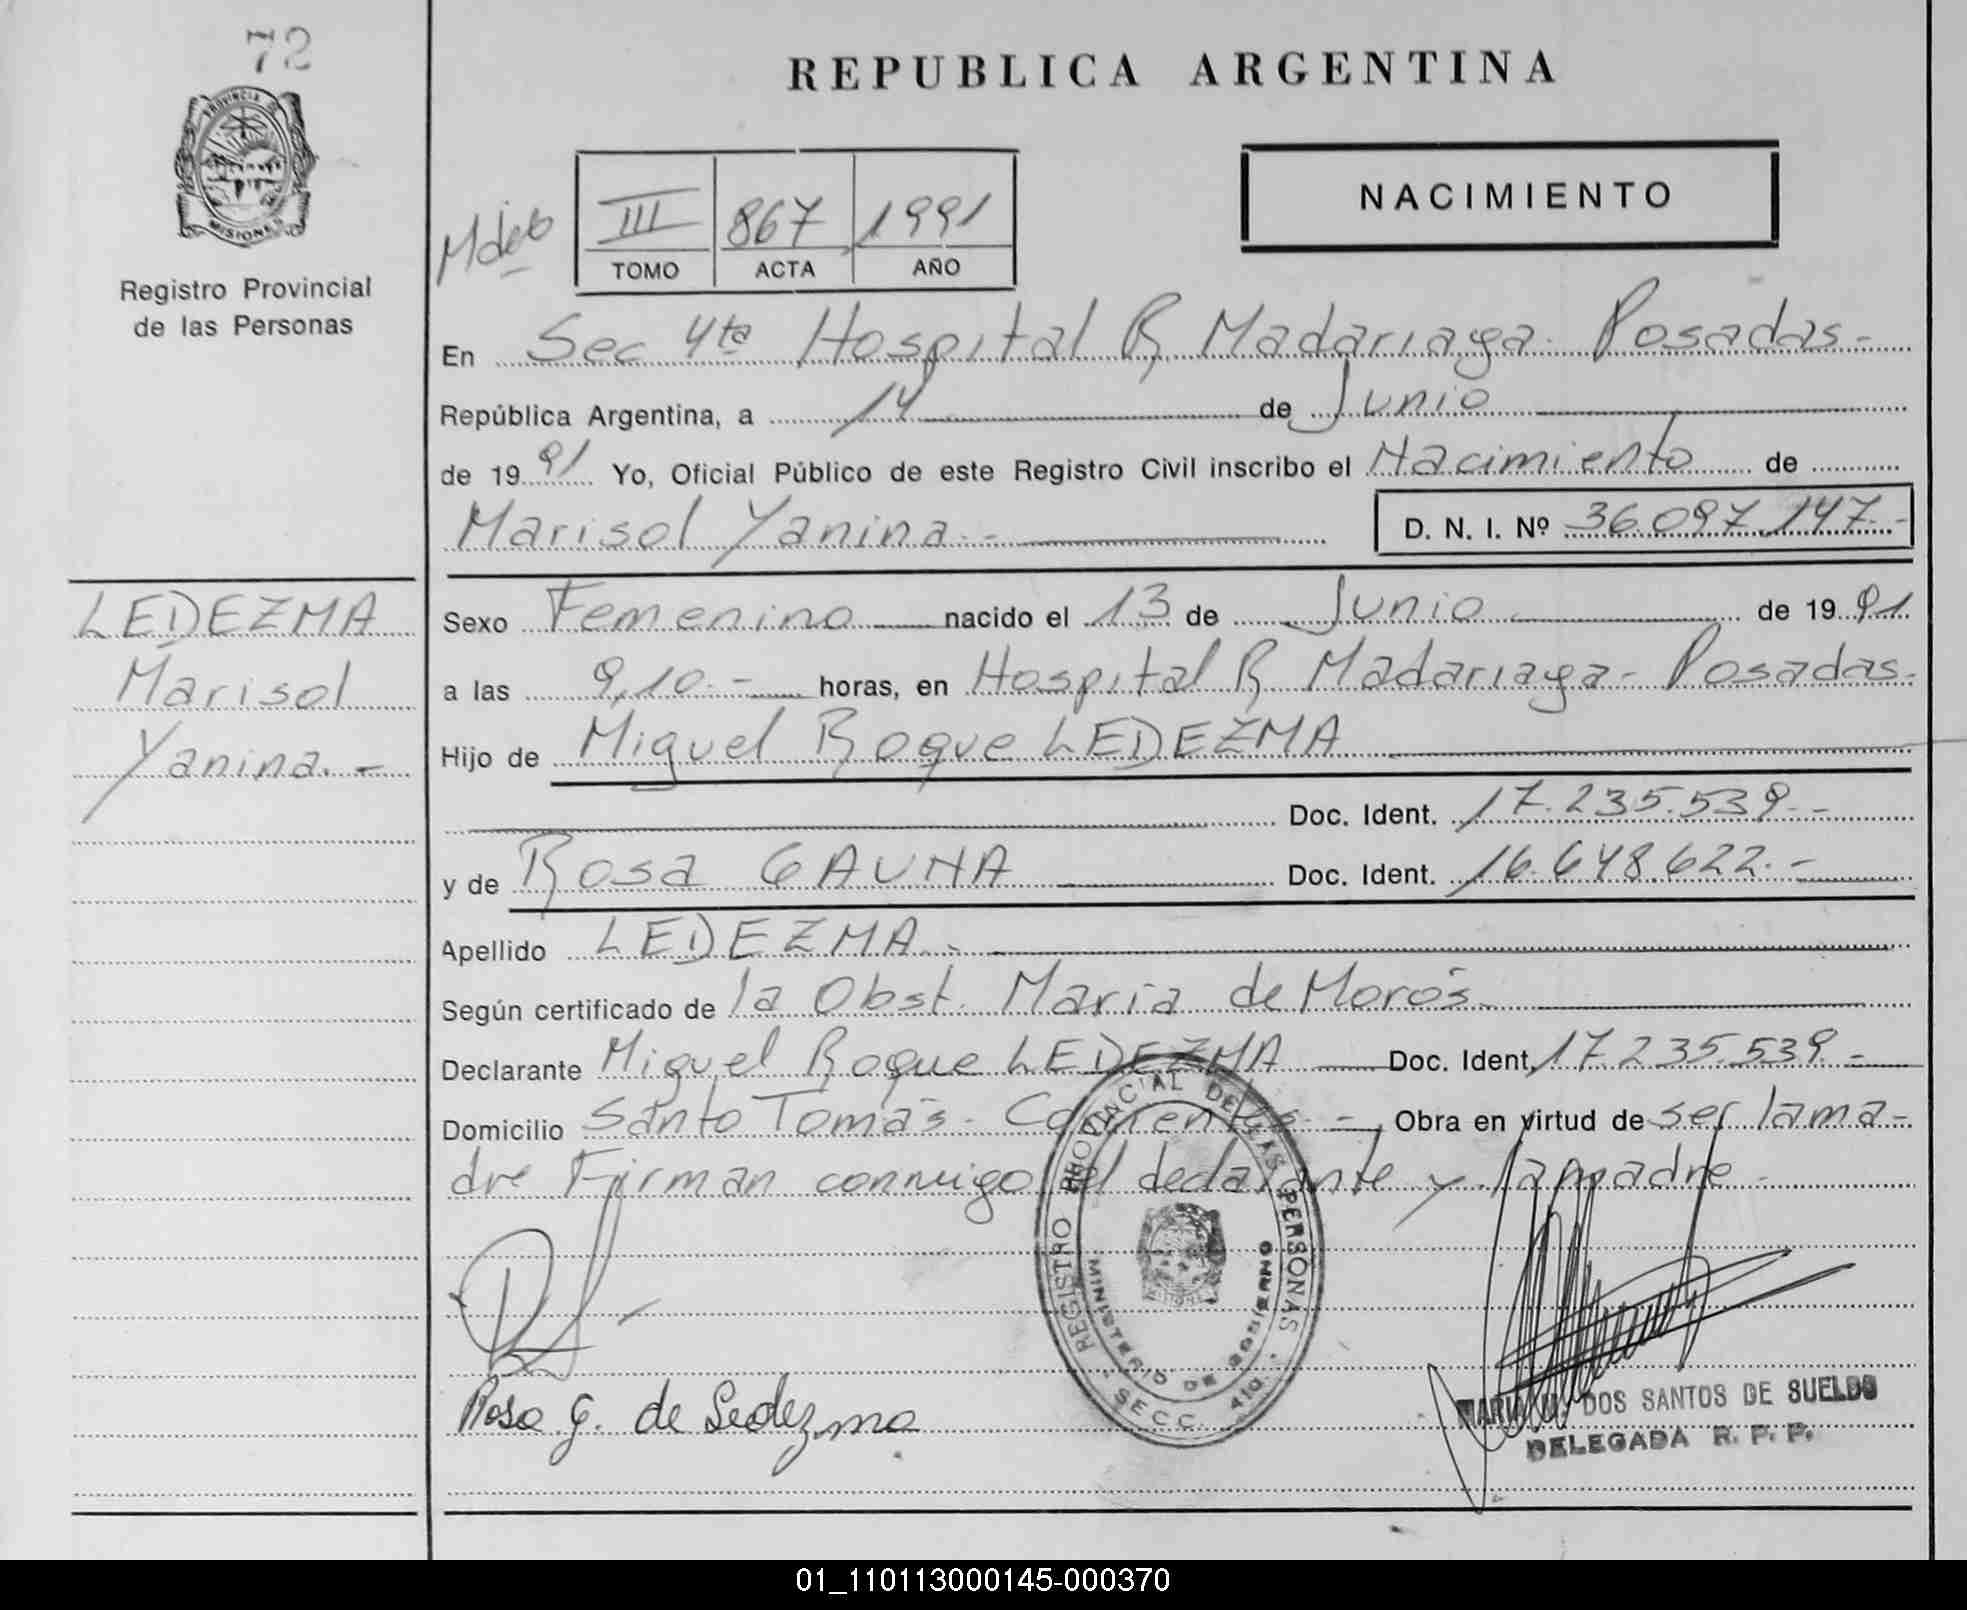 72
PROVINCIA DE
MISIONES
Registro Provincial
de las Personas
LEDEZMA
Marisol
Yanina.-
REPUBLICA ARGENTINA
NACIMIENTO
III 867 1991
TOMO ACTA AÑO
En Sec 4ta Hospital R Madariaga - Posadas -
República Argentina, a 14 de Junio
de 1991 Yo, Oficial Público de este Registro Civil inscribo el Nacimiento de
Marisol Yanina.- D. N. I. Nº 36.097.147.-
Sexo Femenino nacido el 13 de Junio de 1991.
a las 9,10.- horas, en Hospital R Madariaga - Posadas.
Hijo de Miguel Roque LEDEZMA
Doc. Ident. 17.235.539.-
y de Rosa GAUNA Doc. Ident. 16.648.622.-
Apellido LEDEZMA.-
Según certificado de la Obst. Maria de Morós
Declarante Miguel Roque LEDEZMA Doc. Ident. 17.235.539.-
Domicilio Santo Tomás - Corrientes. - Obra en virtud de ser la ma-
dre Firman conmigo el declarante y la madre -
REGISTRO PROVINCIAL DE LAS PERSONAS
MINISTERIO DE GOBIERNO
SECC. 4ta.
Rosa G. de Ledezma
MARIA M. DOS SANTOS DE SUELDO
DELEGADA R. P. P.
01_110113000145-000370